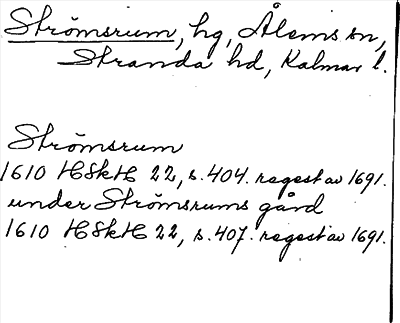 Strömsrum, hg, Ålems sn,
Stranda hd, Kalmar l.
Strömsrum
1610 HSkH 22, s. 404. regest av 1691.
under Strömsrums gård
1610 HSkH 22, s. 407. regest av 1691.